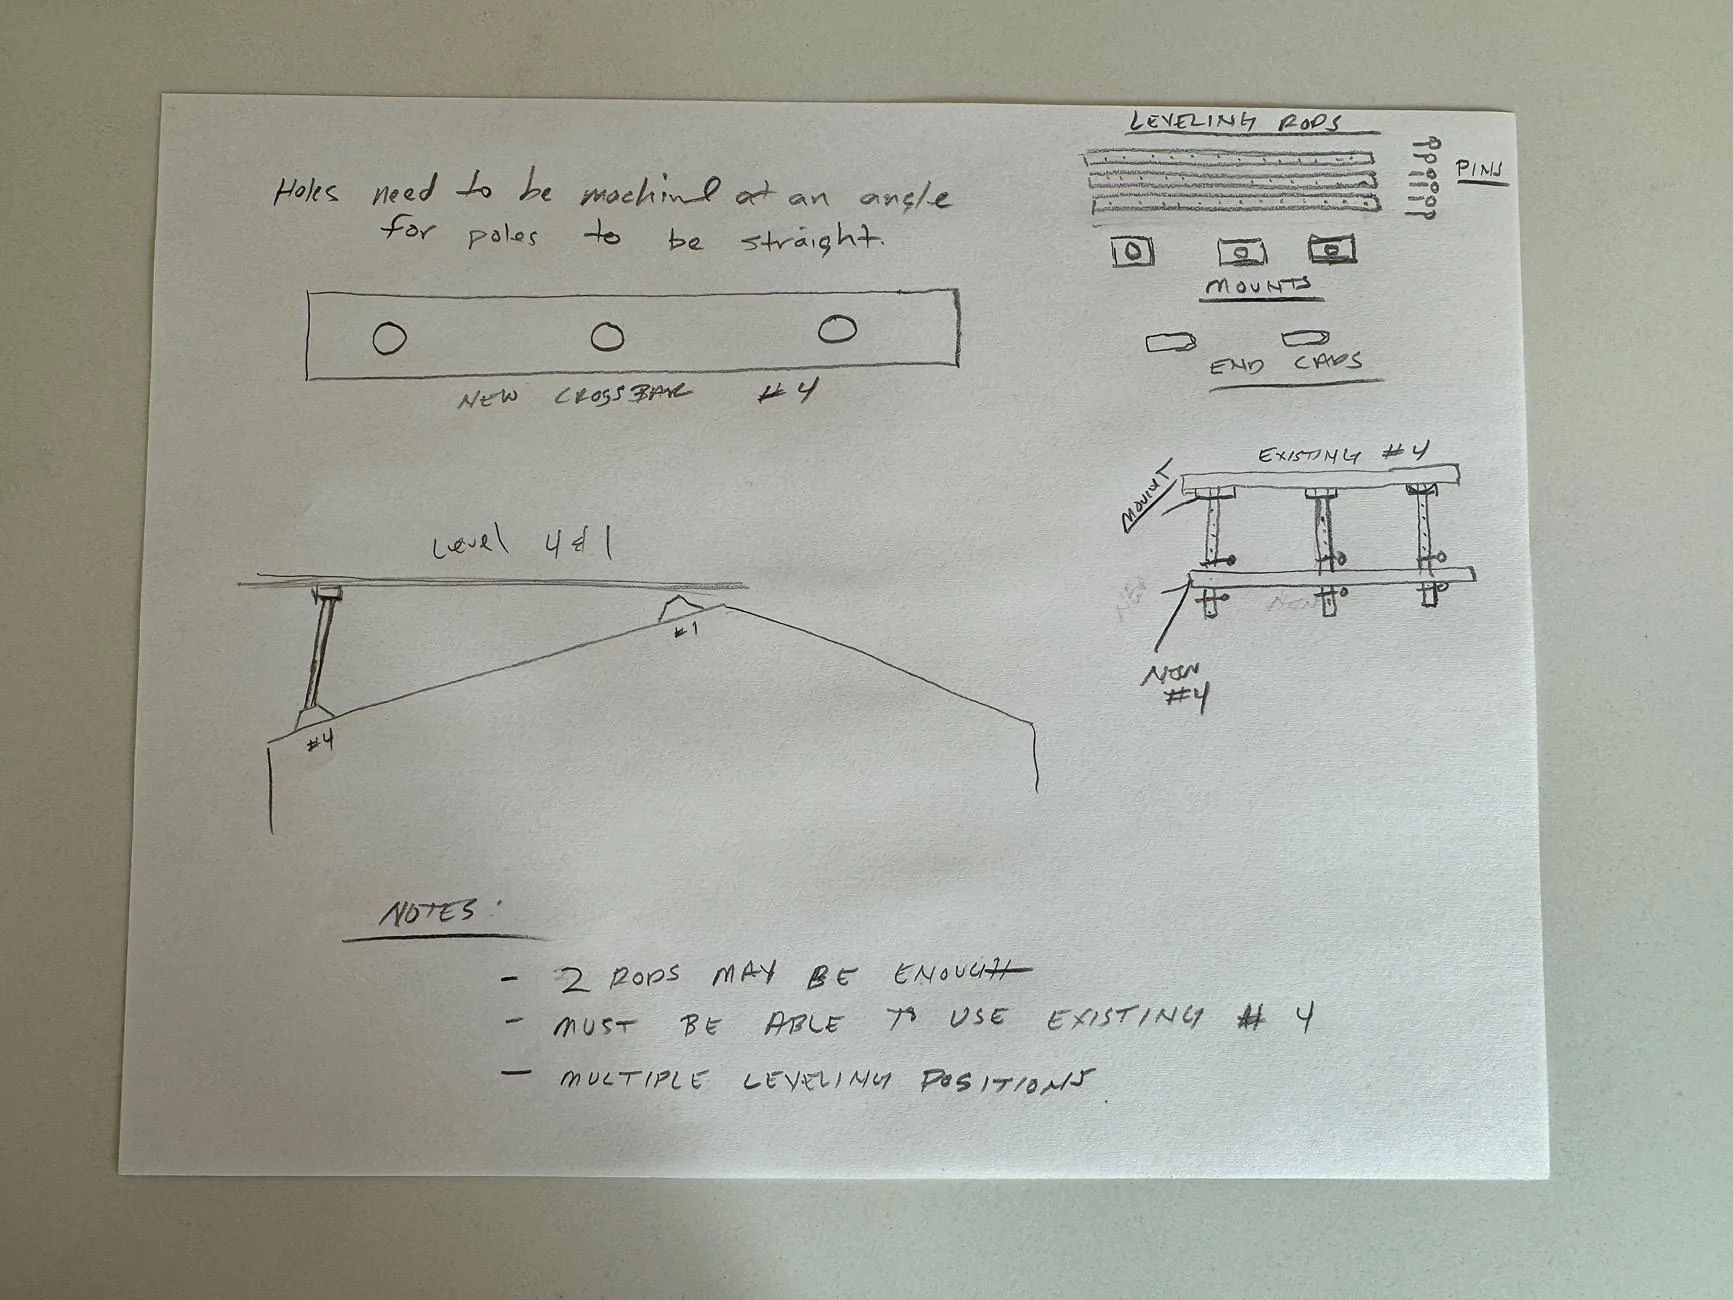 LEVELING RODS
PINS
Holes need to be machind at an angle
for poles to be straight.
MOUNTS
END CAPS
NEW CROSSBAR #4
EXISTING #4
MOUNT
Level 4 & 1
#1
#4
NEW
NEW
NEW
#4
NOTES:
- 2 RODS MAY BE ENOUGH
- MUST BE ABLE TO USE EXISTING # 4
- MULTIPLE LEVELING POSITIONS